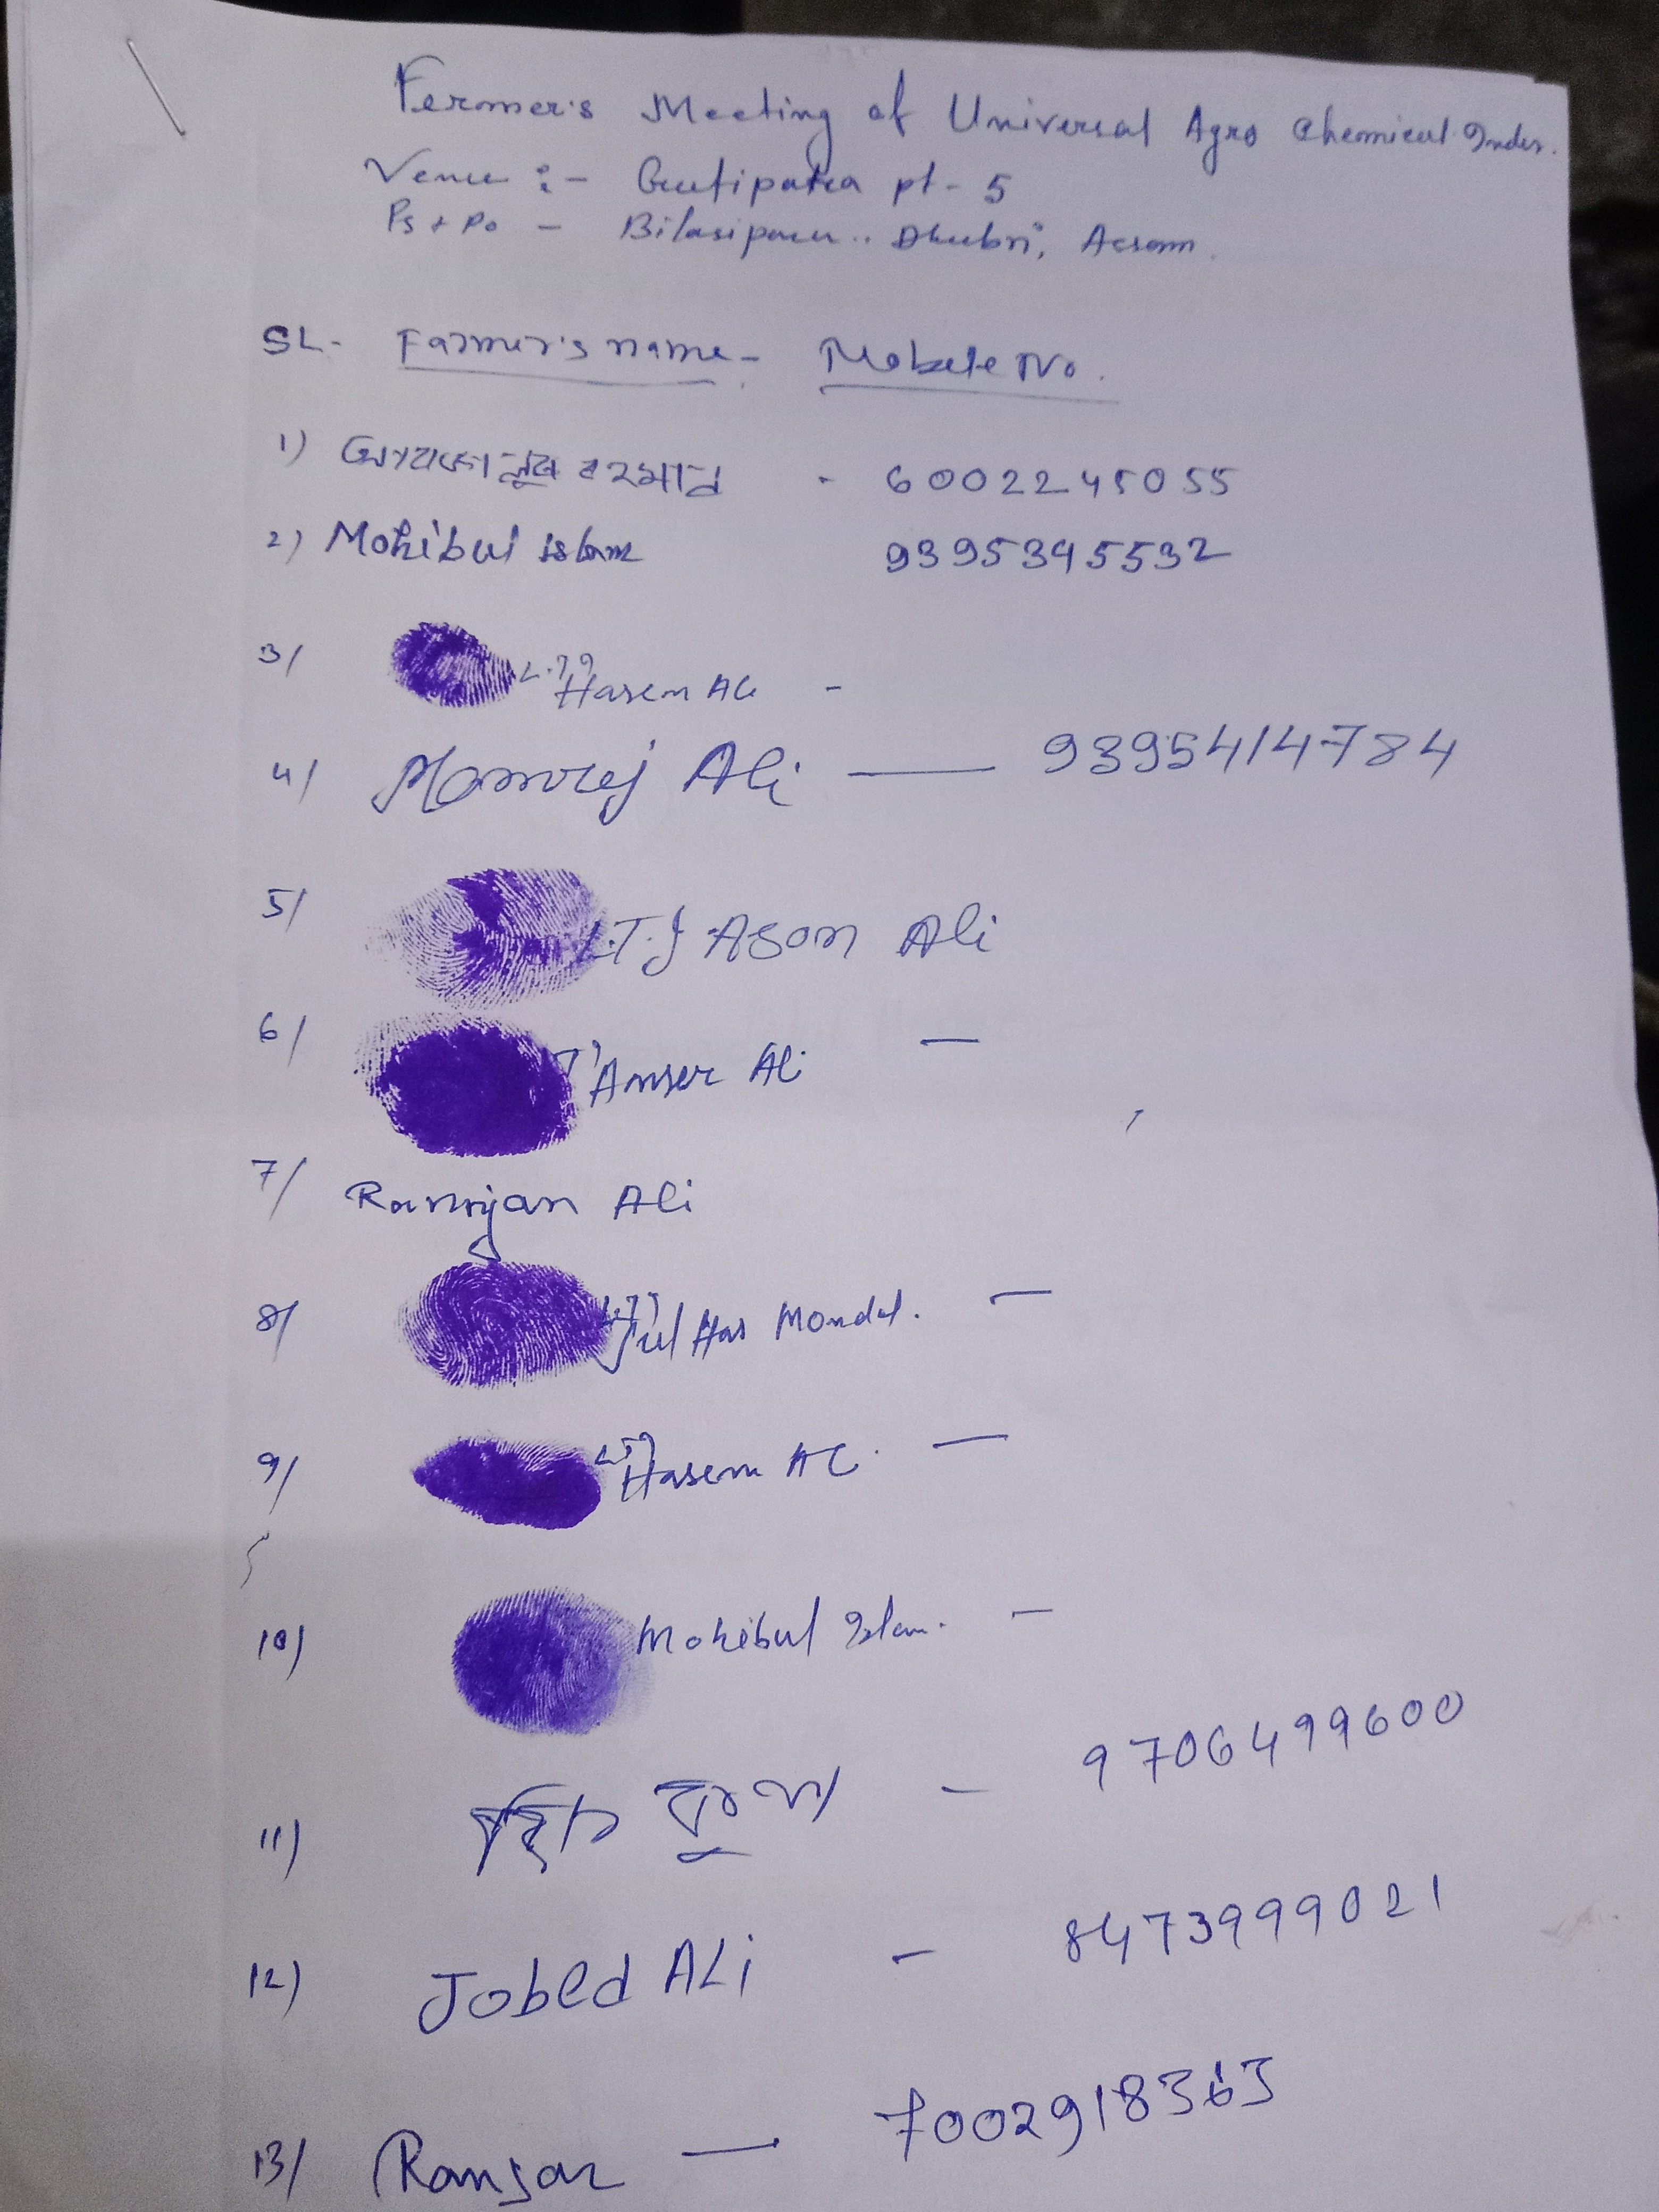 Fermer's Meeting of Universal Agro Chemical Indus.
Venue :- Gutipara pt - 5
Ps + Po - Bilasipara.. Dhubri, Assam.
SL- Farmer's name - Mobele No.
1) রহমান - 6002245055
2) Mohibul islam 9395395532
3/ Hasem Ali -
4/ Monoraj Ali — 9395414784
5/ L.T.I Ason Ali
6/ Anser Ali —
7/ Ramijan Ali
8/ Jul Has Mondal. —
9/ Hasem Ali —
10) Mohibul Islam. —
11) - 9706499600
12) Jobed ALi - 8473999021
13/ Ramjan — 7002918363